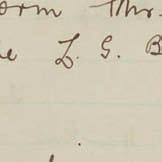 orm Mr.
e L. G. B